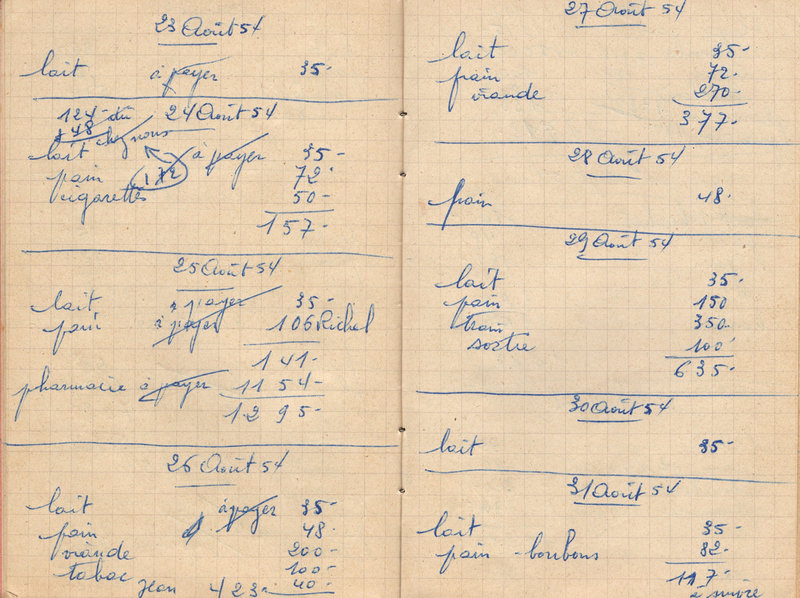 23 Août 54
lait à payer 35-
124- dû 24 Août 54
+48 chez nous
lait à payer 35-
172
pain 72-
cigarettes 50-
157-
25 Août 54
lait à payer 35-
pain à payer 106 Richel
141-
pharmacie à payer 1154-
1295-
26 Août 54
lait à payer 35-
pain 48-
viande 200-
tabac 100-
Jean 423- 40-
27 Août 54
lait 35-
pain 72-
viande 270-
377-
28 Août 54
pain 48-
29 Août 54
lait 35-
pain 150
train 350-
sortie 100-
635-
30 Août 54
lait 35-
31 Août 54
lait 35-
pain - bonbons 82-
117-
à suivre